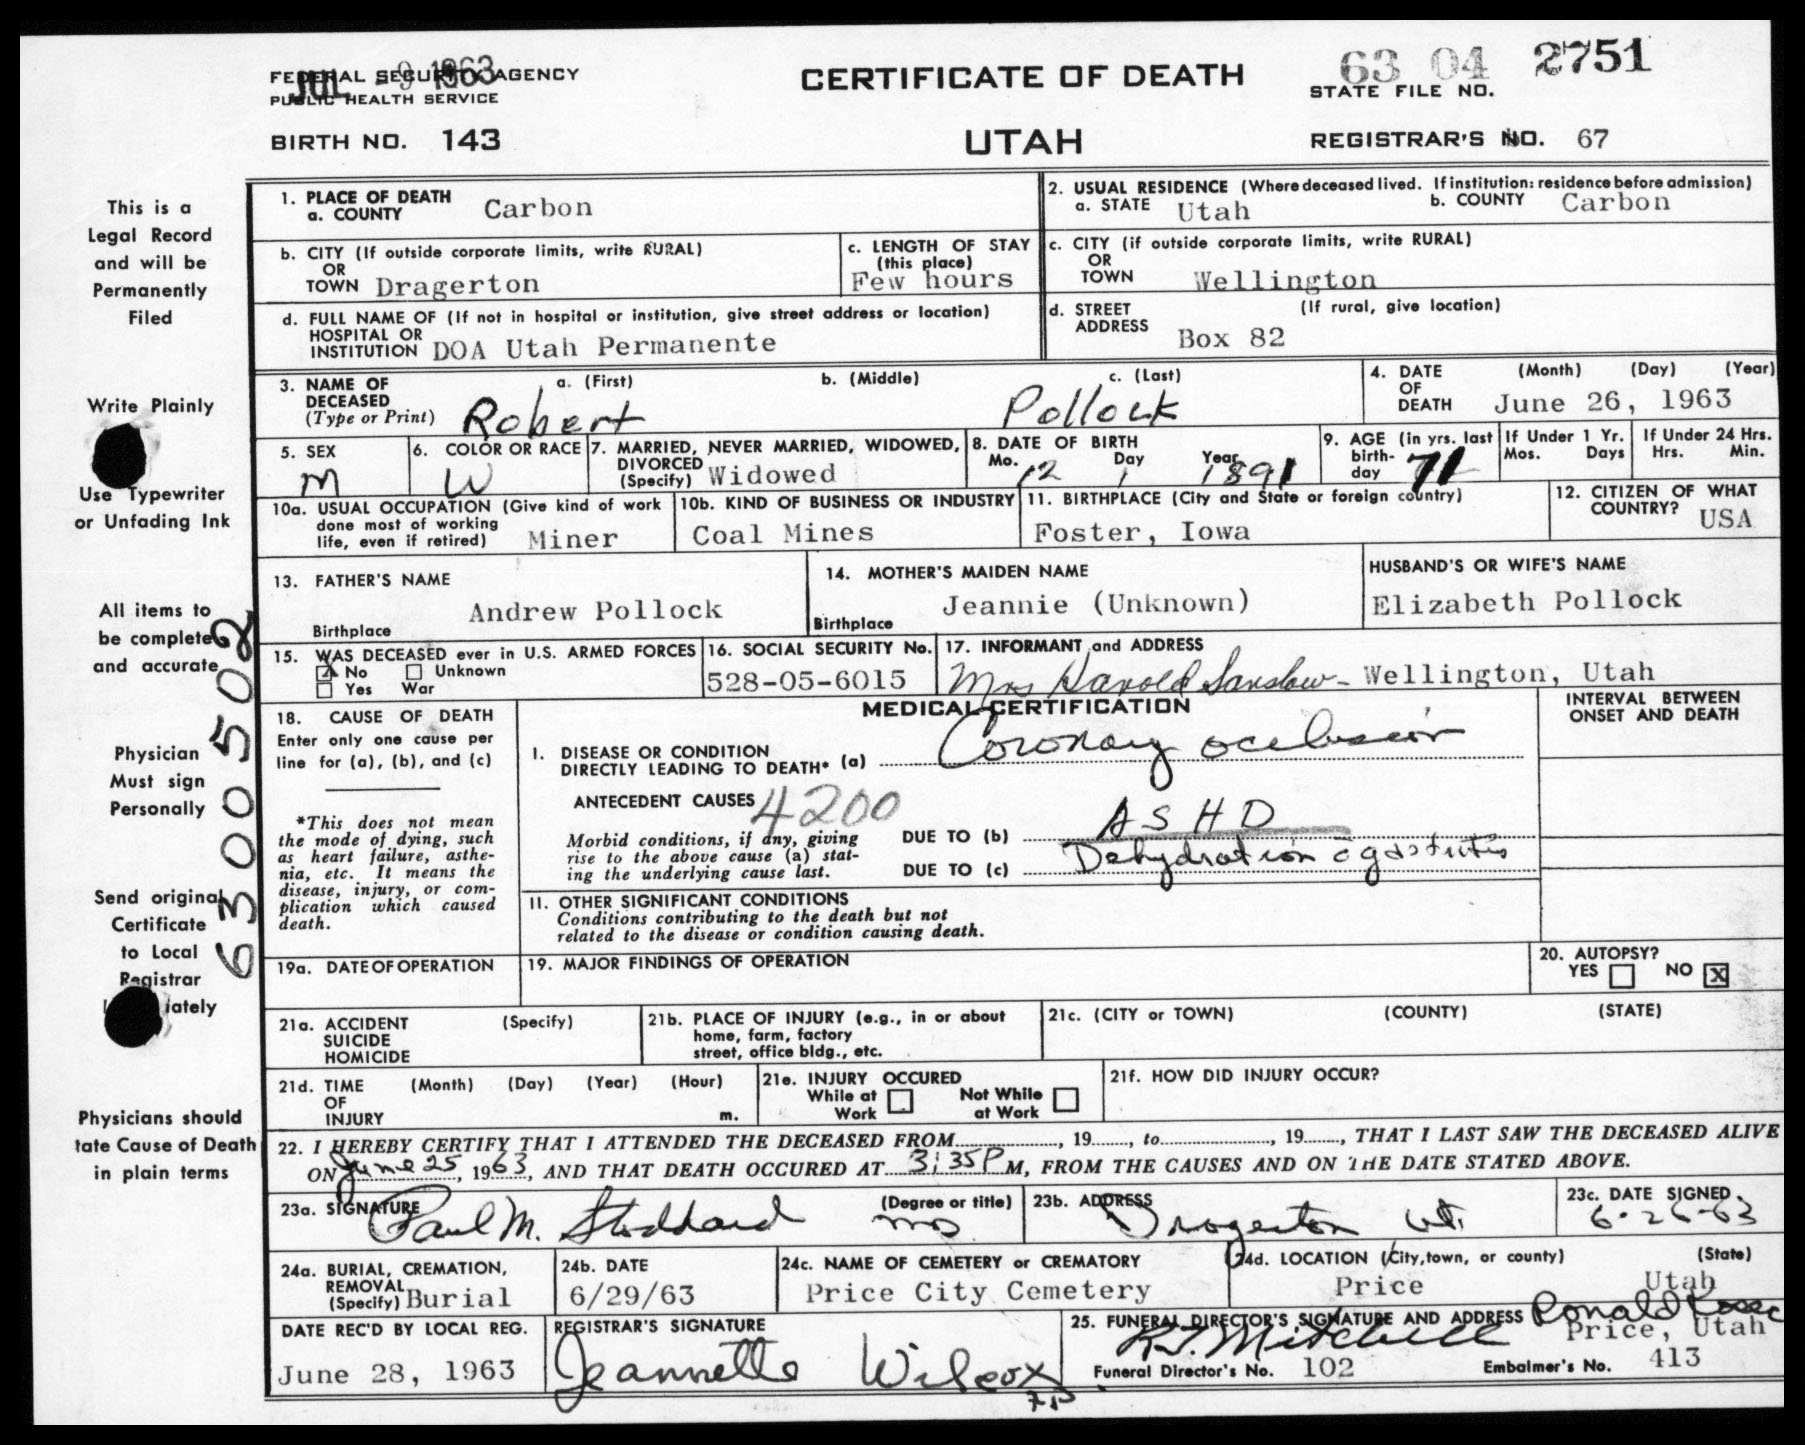 FEDERAL SECURITY AGENCY
PUBLIC HEALTH SERVICE
JUL -9 1963
CERTIFICATE OF DEATH
UTAH
63 04 2751
STATE FILE NO.
BIRTH NO. 143
REGISTRAR'S NO. 67
This is a
Legal Record
and will be
Permanently
Filed
Write Plainly
Use Typewriter
or Unfading Ink
All items to
be complete
and accurate
Physician
Must sign
Personally
Send original
Certificate
to Local
Registrar
iately
Physicians should
tate Cause of Death
in plain terms
63005502
1. PLACE OF DEATH
a. COUNTY Carbon
2. USUAL RESIDENCE (Where deceased lived. If institution: residence before admission)
a. STATE Utah b. COUNTY Carbon
b. CITY (If outside corporate limits, write RURAL)
OR
TOWN Dragerton
c. LENGTH OF STAY
(this place)
Few hours
c. CITY (if outside corporate limits, write RURAL)
OR
TOWN Wellington
d. FULL NAME OF (If not in hospital or institution, give street address or location)
HOSPITAL OR
INSTITUTION DOA Utah Permanente
d. STREET (If rural, give location)
ADDRESS
Box 82
3. NAME OF DECEASED
(Type or Print)
a. (First) b. (Middle) c. (Last)
Robert Pollock
4. DATE OF DEATH (Month) (Day) (Year)
June 26, 1963
5. SEX
M
6. COLOR OR RACE
W
7. MARRIED, NEVER MARRIED, WIDOWED,
DIVORCED
(Specify) Widowed
8. DATE OF BIRTH
Mo. Day Year
12 1 1891
9. AGE (in yrs. last
birth-
day 71
If Under 1 Yr.
Mos. Days
If Under 24 Hrs.
Hrs. Min.
10a. USUAL OCCUPATION (Give kind of work
done most of working
life, even if retired) Miner
10b. KIND OF BUSINESS OR INDUSTRY
Coal Mines
11. BIRTHPLACE (City and State or foreign country)
Foster, Iowa
12. CITIZEN OF WHAT
COUNTRY? USA
13. FATHER'S NAME
Andrew Pollock
Birthplace
14. MOTHER'S MAIDEN NAME
Jeannie (Unknown)
Birthplace
HUSBAND'S OR WIFE'S NAME
Elizabeth Pollock
15. WAS DECEASED ever in U.S. ARMED FORCES
X No Unknown
Yes War
16. SOCIAL SECURITY No.
528-05-6015
17. INFORMANT and ADDRESS
Mrs Harold Sanslow - Wellington, Utah
18. CAUSE OF DEATH
Enter only one cause per
line for (a), (b), and (c)
*This does not mean
the mode of dying, such
as heart failure, asthe-
nia, etc. It means the
disease, injury, or com-
plication which caused
death.
MEDICAL CERTIFICATION
INTERVAL BETWEEN
ONSET AND DEATH
I. DISEASE OR CONDITION
DIRECTLY LEADING TO DEATH* (a) Coronary occlusion
ANTECEDENT CAUSES 4200
Morbid conditions, if any, giving
rise to the above cause (a) stat-
ing the underlying cause last.
DUE TO (b) ASHD
DUE TO (c) Dehydration
II. OTHER SIGNIFICANT CONDITIONS
Conditions contributing to the death but not
related to the disease or condition causing death.
19a. DATE OF OPERATION
19. MAJOR FINDINGS OF OPERATION
20. AUTOPSY?
YES NO X
21a. ACCIDENT (Specify)
SUICIDE
HOMICIDE
21b. PLACE OF INJURY (e.g., in or about
home, farm, factory
street, office bldg., etc.
21c. (CITY or TOWN) (COUNTY) (STATE)
21d. TIME (Month) (Day) (Year) (Hour)
OF
INJURY m.
21e. INJURY OCCURED
While at Work Not While at Work
21f. HOW DID INJURY OCCUR?
22. I HEREBY CERTIFY THAT I ATTENDED THE DECEASED FROM, 19, to, 19, THAT I LAST SAW THE DECEASED ALIVE
ON June 25, 1963, AND THAT DEATH OCCURED AT 3:35P M, FROM THE CAUSES AND ON THE DATE STATED ABOVE.
23a. SIGNATURE (Degree or title)
Paul M. Stoddard MD
23b. ADDRESS
Dragerton Ut.
23c. DATE SIGNED
6-26-63
24a. BURIAL, CREMATION,
REMOVAL
(Specify) Burial
24b. DATE
6/29/63
24c. NAME OF CEMETERY or CREMATORY
Price City Cemetery
24d. LOCATION (City, town, or county) (State)
Price Utah
DATE REC'D BY LOCAL REG.
June 28, 1963
REGISTRAR'S SIGNATURE
Jeannette Wilcox
25. FUNERAL DIRECTOR'S SIGNATURE AND ADDRESS
R.J. Mitchell Ronald
Price, Utah
Funeral Director's No. 102 Embalmer's No. 413